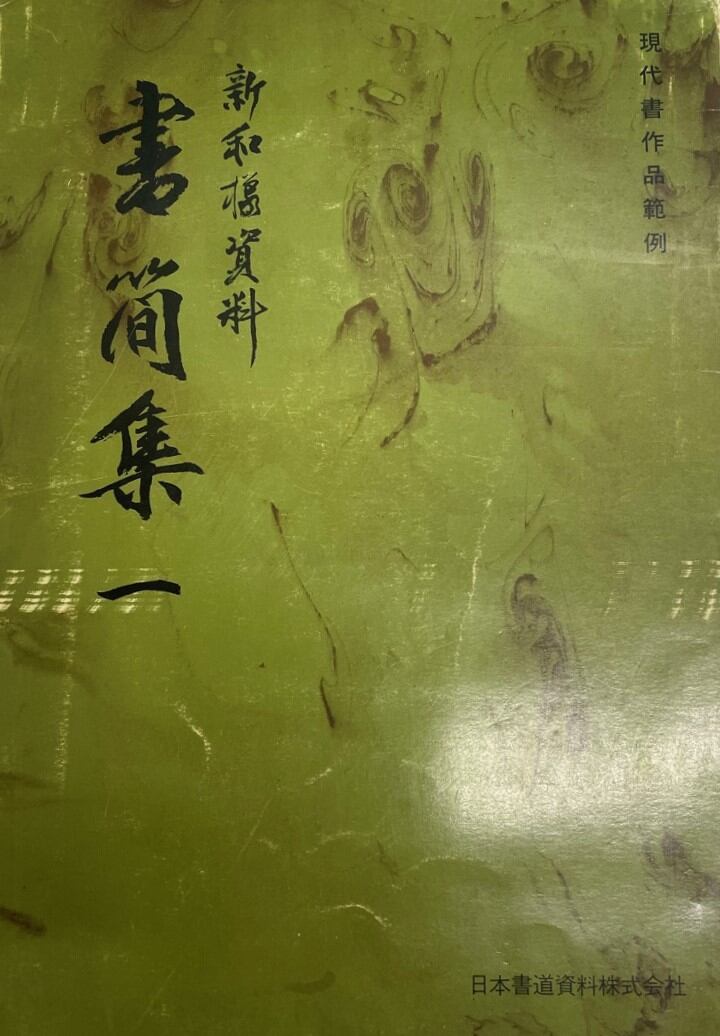 現代書作品範例
新和様資料
書簡集一
日本書道資料株式会社